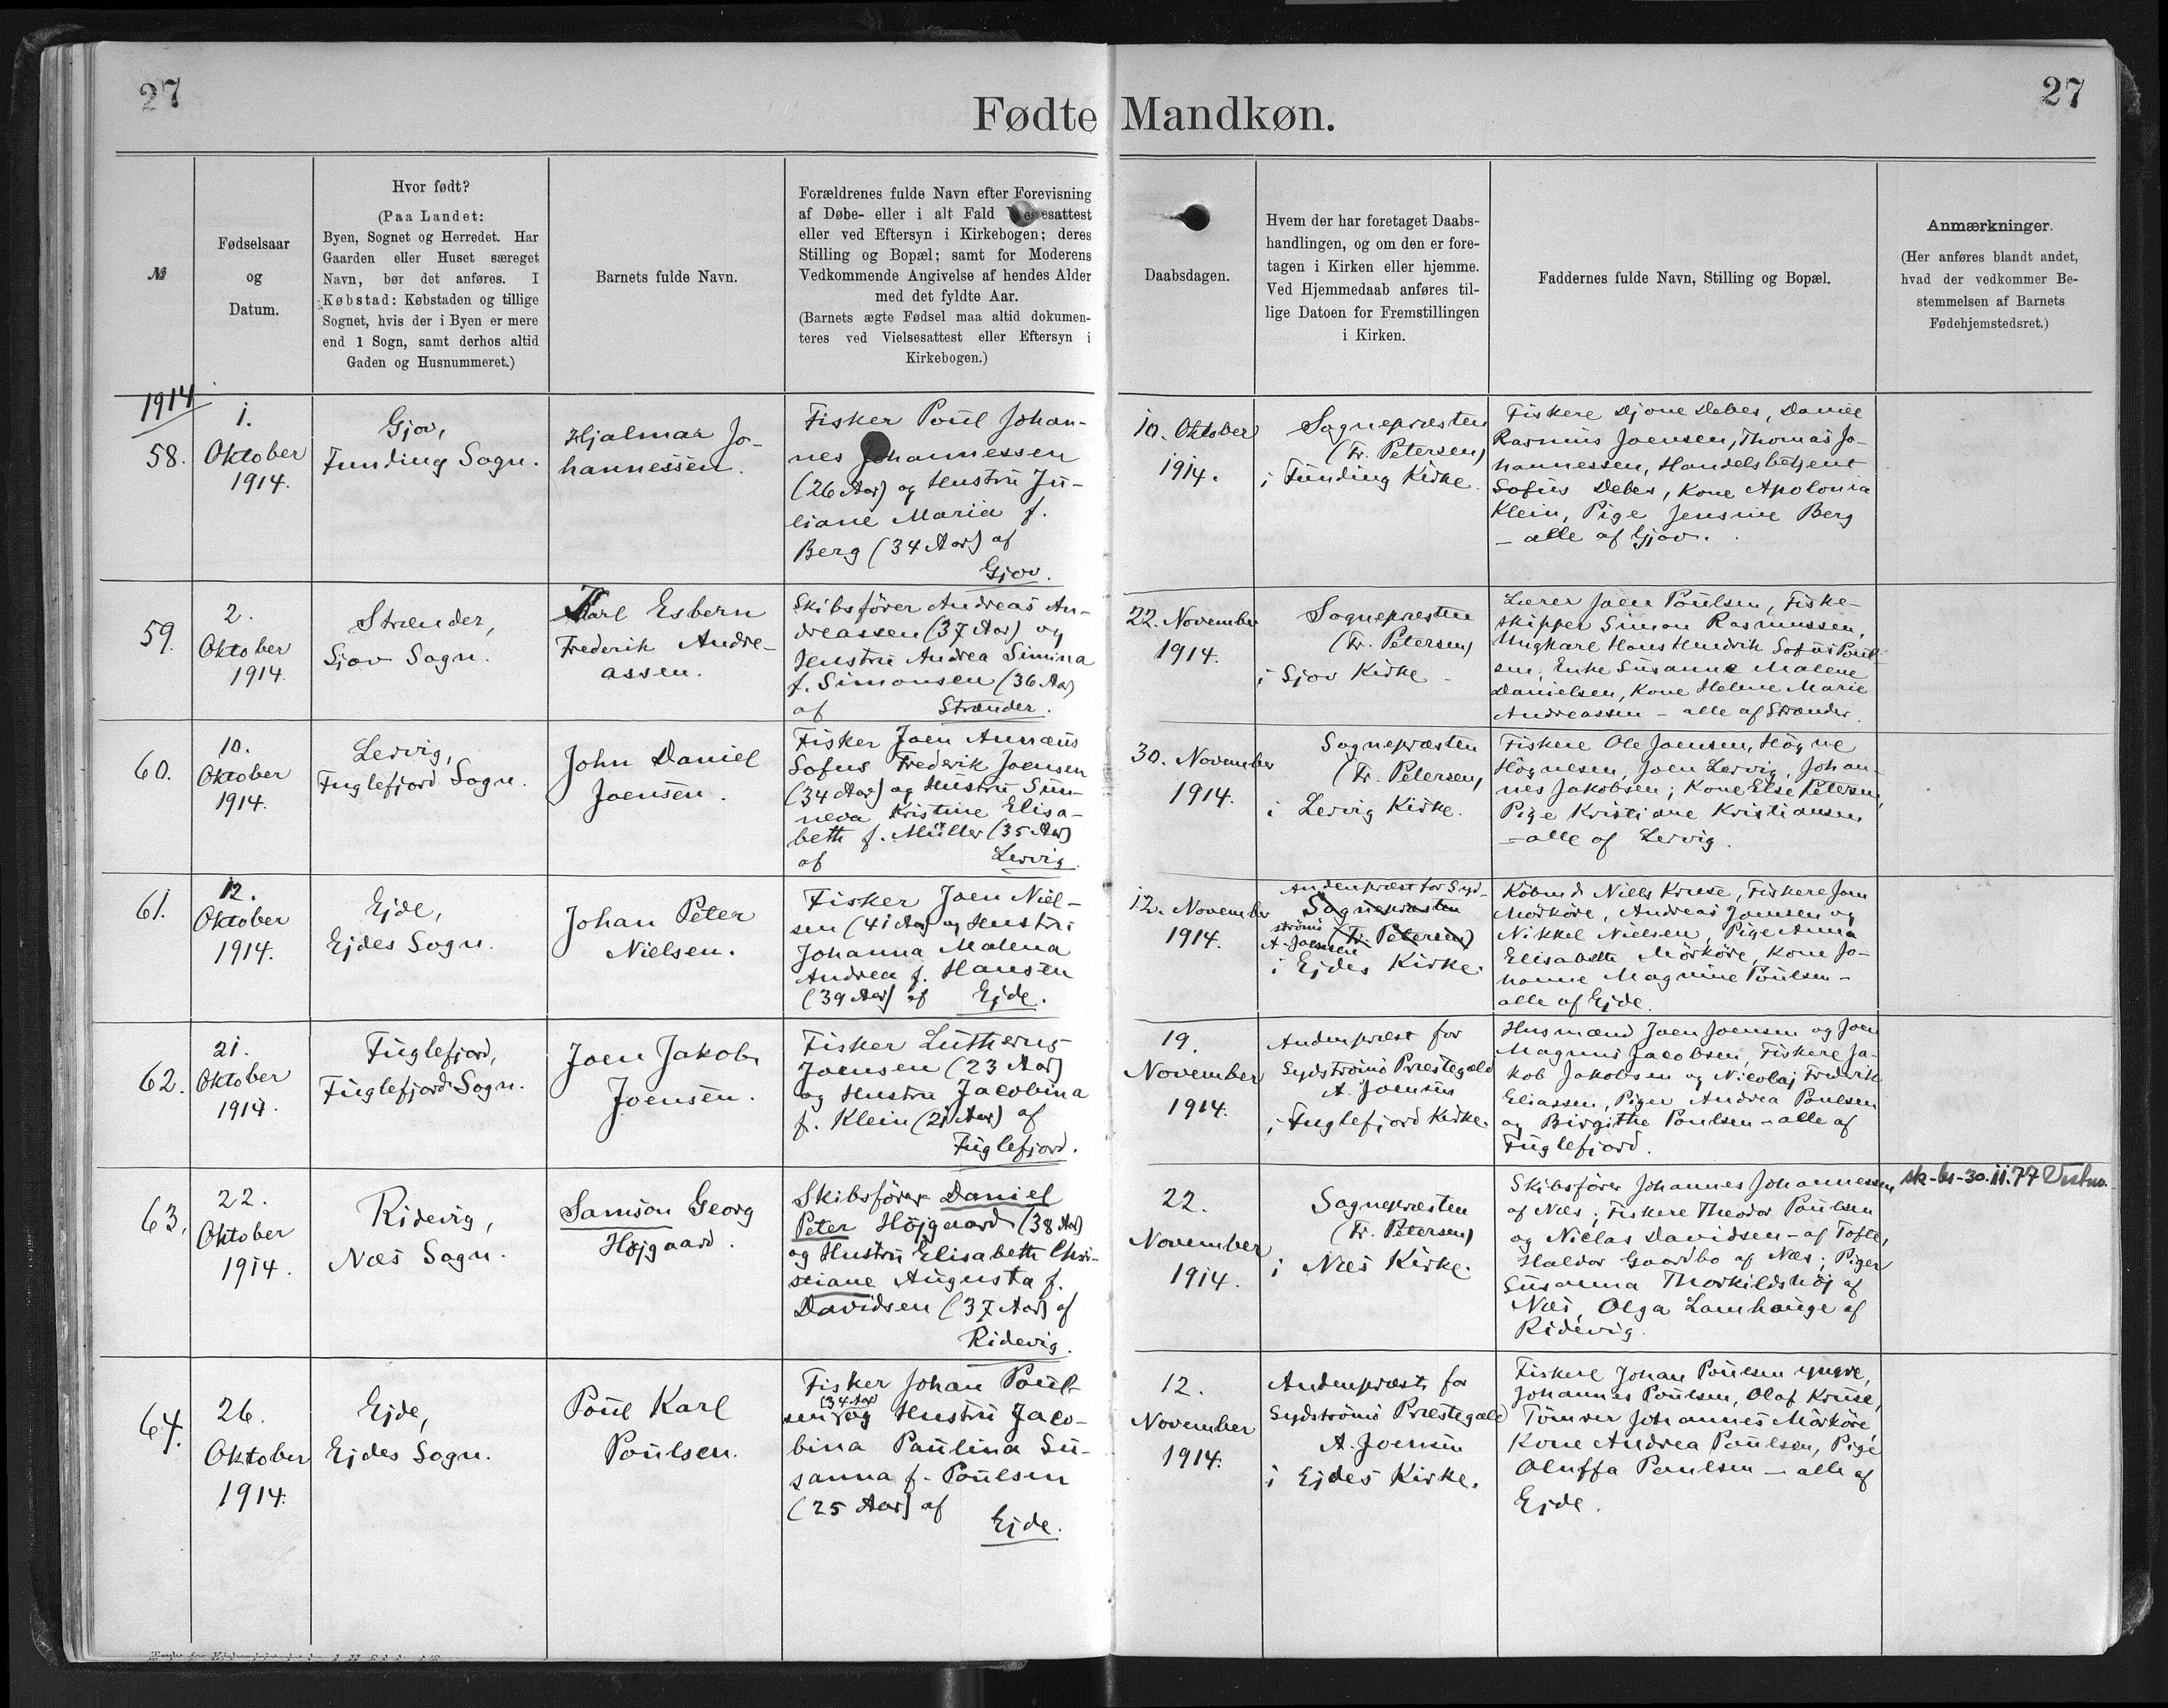 27
27
Fødte Mandkøn.
№
Fødselsaar
og
Datum.
Hvor født?
(Paa Landet:
Byen, Sognet og Herredet. Har
Gaarden eller Huset særeget
Navn, bør det anføres. I
Købstad: Købstaden og tillige
Sognet, hvis der i Byen er mere
end 1 Sogn, samt derhos altid
Gaden og Husnummeret.)
Barnets fulde Navn.
Forældrenes fulde Navn efter Forevisning
af Døbe- eller i alt Fald esattest
eller ved Eftersyn i Kirkebogen; deres
Stilling og Bopæl; samt for Moderens
Vedkommende Angivelse af hendes Alder
med det fyldte Aar.
(Barnets ægte Fødsel maa altid dokumen-
teres ved Vielsesattest eller Eftersyn i
Kirkebogen.)
Daabsdagen.
Hvem der har foretaget Daabs-
handlingen, og om den er fore-
tagen i Kirken eller hjemme.
Ved Hjemmedaab anføres til-
lige Datoen for Fremstillingen
i Kirken.
Faddernes fulde Navn, Stilling og Bopæl.
Anmærkninger.
(Her anføres blandt andet,
hvad der vedkommer Be-
stemmelsen af Barnets
Fødehjemstedsret.)
1914
58.
1.
Oktober
1914.
Gjov,
Funding Sogn.
Hjalmar Jo-
hannessen.
Fisker Poul Johan-
nes Johannessen
(26 Aar) og Hustru Ju-
liane Maria f.
Berg (34 Aar) af
Gjov.
10. Oktober
1914.
Sognepræsten
(Fr. Petersen)
i Funding Kirke.
Fiskere Djone Debes, Daniel
Rasmus Joensen, Thomas Jo-
hannessen, Handelsbetjent
Sofus Debes, Kone Apolonia
Klein, Pige Jensine Berg
– alle af Gjov.
59.
2.
Oktober
1914.
Strænder,
Sjov Sogn.
Karl Esbern
Frederik Andre-
assen.
Skibsfører Andreas An-
dreassen (37 Aar) og
Hustru Andrea Simina
f. Simonsen (36 Aar)
af Strænder.
22. November
1914.
Sognepræsten
(Fr. Petersen)
i Sjov Kirke.
Lærer Joen Poulsen, Fiske-
skipper Simon Rasmussen,
Ungkarl Hans Hendrik Sofus Poul-
sen, Enke Susanne Malene
Danielsen, Kone Helene Marie
Andreassen – alle af Strænder.
60.
10.
Oktober
1914.
Lervig,
Fuglefjord Sogn.
John Daniel
Joensen.
Fisker Joen Annæus
Sofus Frederik Joensen
(34 Aar) og Hustru Sun-
neva Kristine Elisa-
beth f. Müller (35 Aar)
af Lervig.
30. November
1914.
Sognepræsten
(Fr. Petersen)
i Lervig Kirke.
Fiskere Ole Joensen, Høgne
Høgnesen, Joen Lervig, Johan-
nes Jakobsen; Kone Else Petersen,
Pige Kristiane Kristiansen
– alle af Lervig.
61.
12.
Oktober
1914.
Ejde,
Ejdes Sogn.
Johan Peter
Nielsen.
Fisker Joen Niel-
sen (41 Aar) og Hustru
Johanna Malena
Andrea f. Hansen
(39 Aar) af Ejde.
12. November
1914.
Andenpræst for Syd-
Sognepræsten
strømø (Fr. Petersen)
A. Joensen
i Ejdes Kirke.
Købmd. Niels Kruse, Fiskere Joen
Mørkøre, Andreas Joensen og
Nikkel Nielsen, Pige Anna
Elisabeth Mørkøre, Kone Jo-
hanne Magnine Poulsen –
alle af Ejde.
62.
21.
Oktober
1914.
Fuglefjord,
Fuglefjord Sogn.
Joen Jakob
Joensen.
Fisker Lutherus
Joensen (23 Aar)
og Hustru Jacobina
f. Klein (21 Aar) af
Fuglefjord.
19.
November
1914.
Andenpræst for
Sydstrømø Præstegæld
A. Joensen
i Fuglefjord Kirke.
Husmænd Joen Joensen og Joen
Magnus Jacobsen, Fiskere Ja-
kob Jakobsen og Nicolaj Frederik
Eliassen, Piger Andrea Poulsen
og Birgithe Poulsen – alle af
Fuglefjord.
63.
22.
Oktober
1914.
Ridevig,
Næs Sogn.
Samson Georg
Højgaard.
Skibsfører Daniel
Peter Højgaard (38 Aar)
og Hustru Elisabeth Chri-
stiane Augusta f.
Davidsen (37 Aar) af
Ridevig.
22.
November
1914.
Sognepræsten
(Fr. Petersen)
i Næs Kirke.
Skibsfører Johannes Johannessen
af Næs; Fiskere Theodor Poulsen
og Niclas Davidsen – af Tofte,
Haldor Gaardbo af Næs; Piger
Susanna Thorkildshøj af
Næs, Olga Lamhauge af
Ridevig.
sk-bs-30.11.77
64.
26.
Oktober
1914.
Ejde,
Ejdes Sogn.
Poul Karl
Poulsen.
Fisker Johan Poul-
(34 Aar)
sen og Hustru Jaco-
bina Paulina Su-
sanna f. Poulsen
(25 Aar) af
Ejde.
12.
November
1914.
Andenpræst for
Sydstrømø Præstegæld
A. Joensen
i Ejdes Kirke.
Fiskere Johan Poulsen yngre,
Johannes Poulsen, Olaf Kruse,
Tømrer Johannes Mørkøre,
Kone Andrea Poulsen, Pige
Oluffa Poulsen – alle af
Ejde.